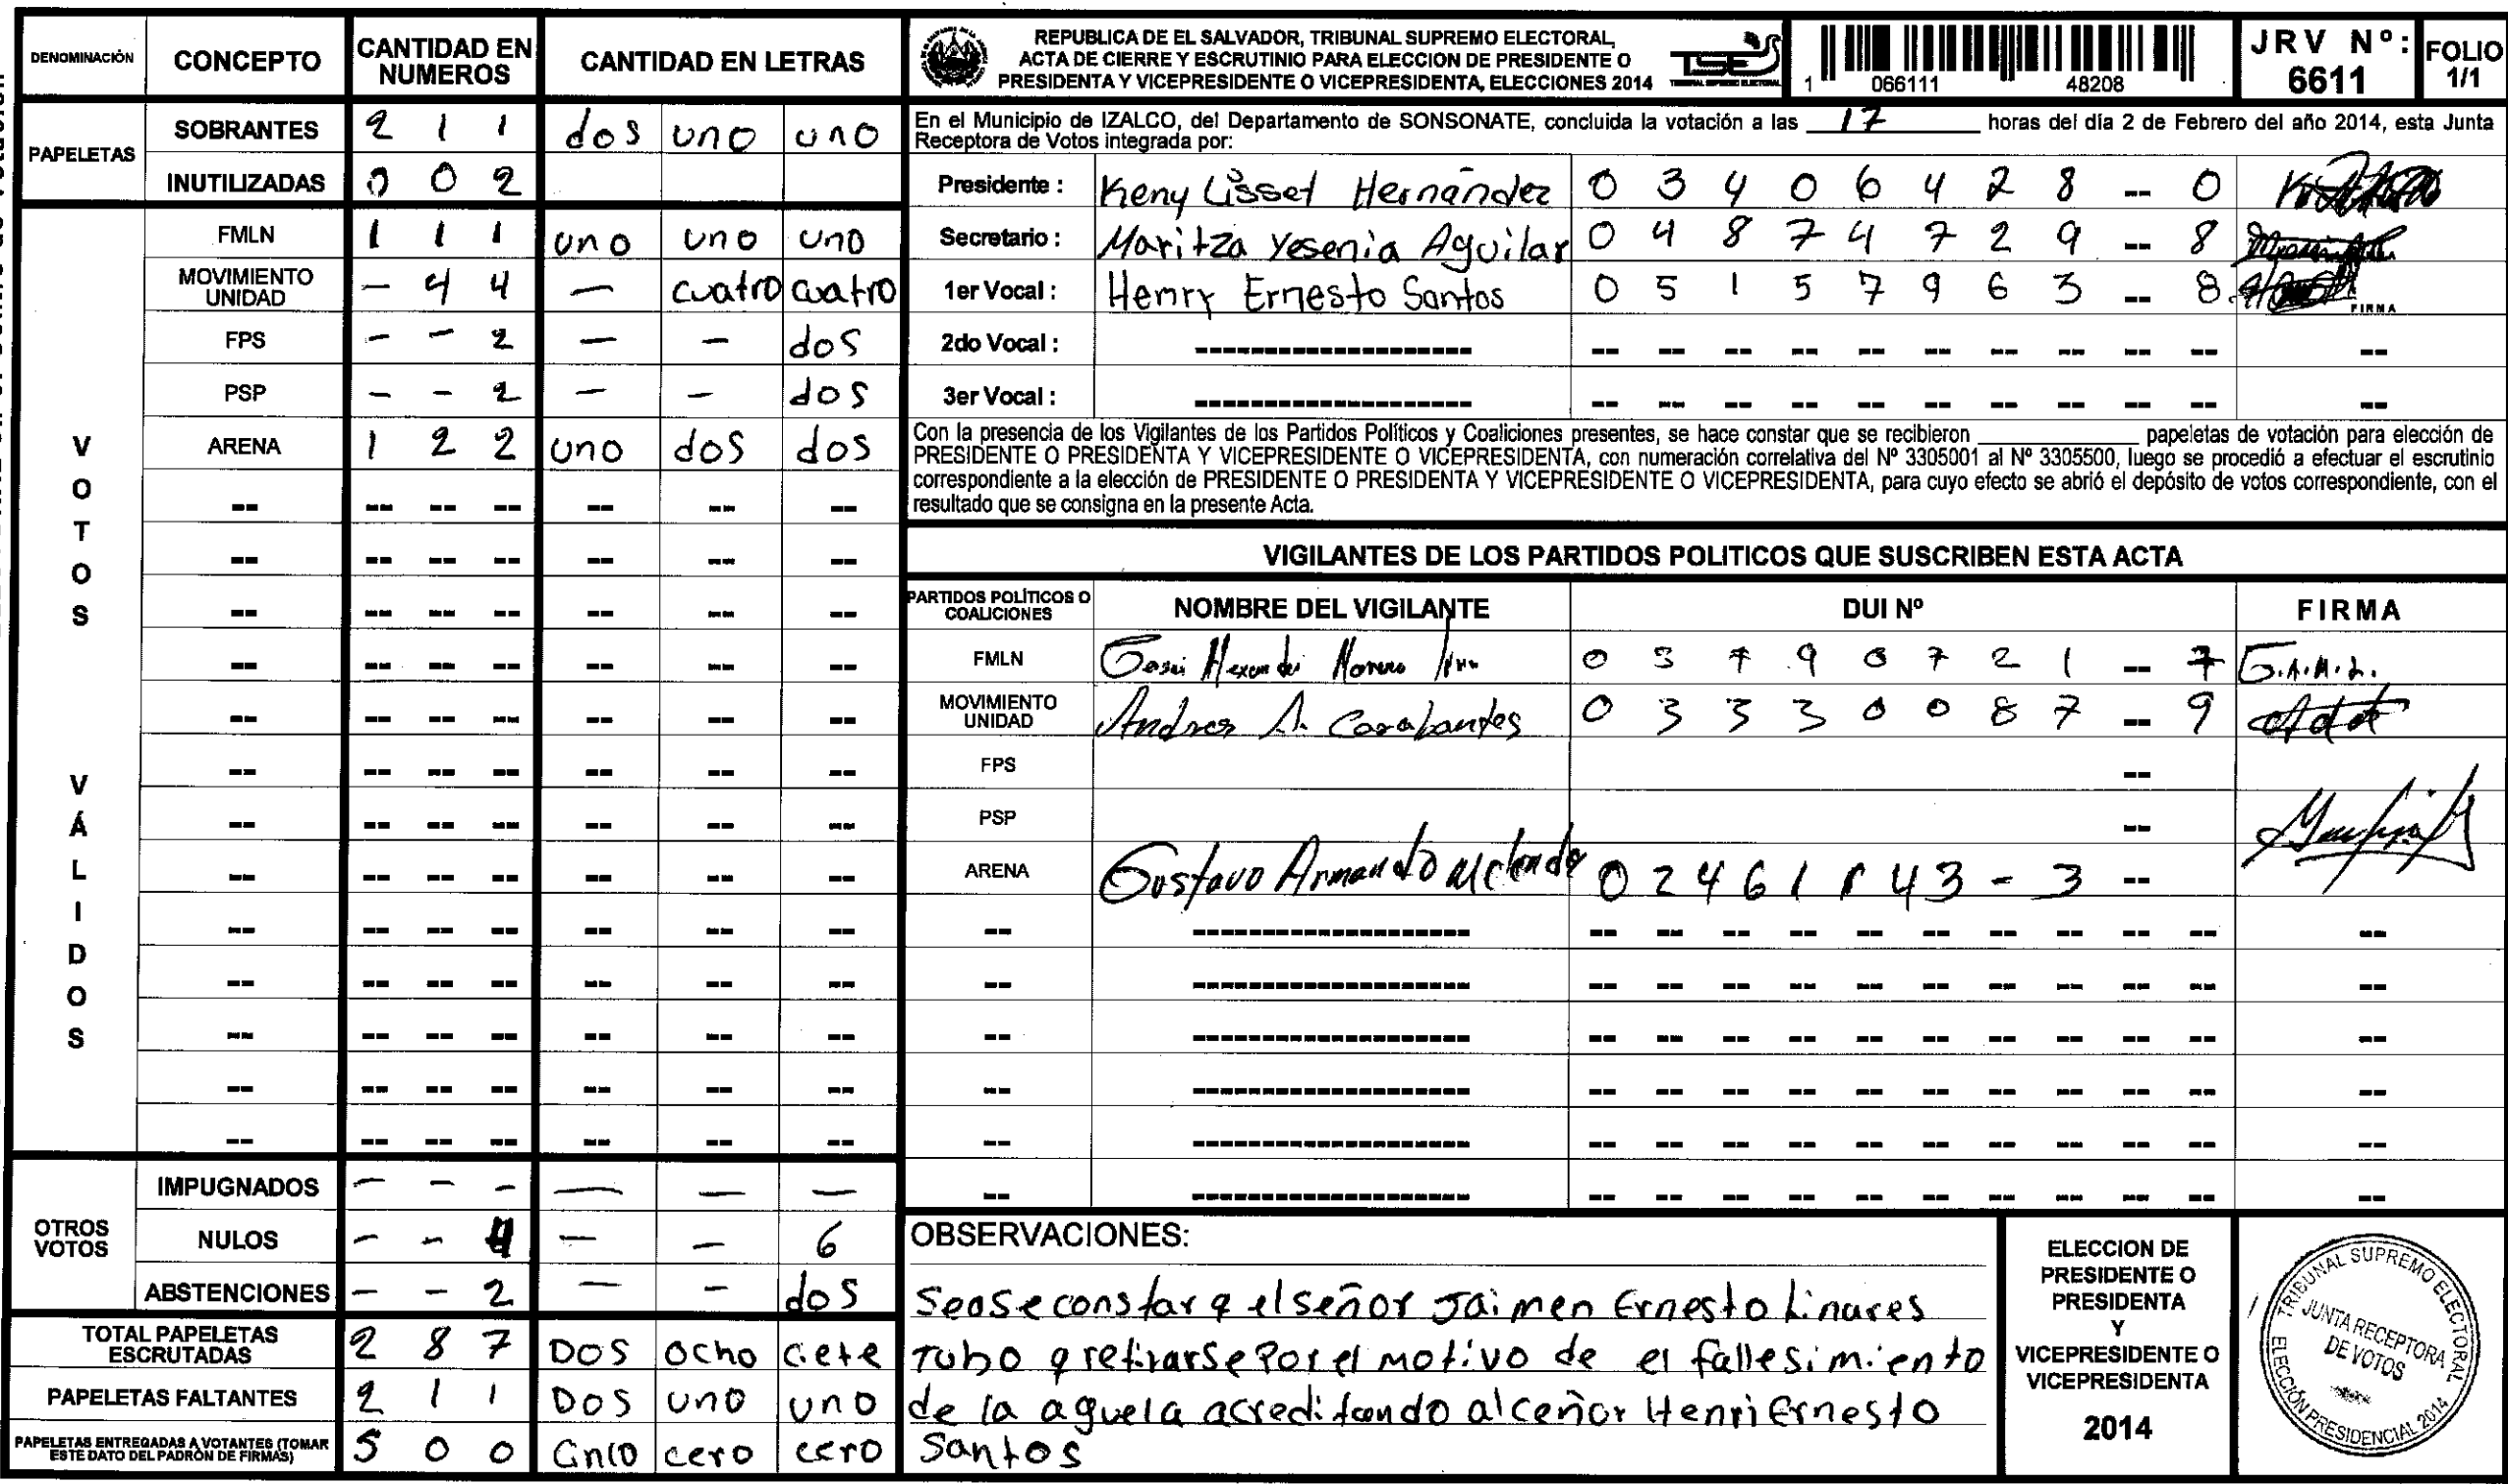 DENOMINACIÓN CONCEPTO CANTIDAD EN NUMEROS CANTIDAD EN LETRAS
PAPELETAS
SOBRANTES 2 1 1 dos uno uno
INUTILIZADAS 0 0 2
VOTOS VÁLIDOS
FMLN 1 1 1 uno uno uno
MOVIMIENTO UNIDAD - 4 4 - cuatro cuatro
FPS - - 2 - - dos
PSP - - 2 - - dos
ARENA 1 2 2 uno dos dos
OTROS VOTOS
IMPUGNADOS - - - - - -
NULOS - - 4 - - 6
ABSTENCIONES - - 2 - - dos
TOTAL PAPELETAS ESCRUTADAS 2 8 7 DOS ocho ciete
PAPELETAS FALTANTES 2 1 1 DOS uno uno
PAPELETAS ENTREGADAS A VOTANTES (TOMAR ESTE DATO DEL PADRÓN DE FIRMAS) 5 0 0 Cnco cero cero
REPUBLICA DE EL SALVADOR, TRIBUNAL SUPREMO ELECTORAL,
ACTA DE CIERRE Y ESCRUTINIO PARA ELECCION DE PRESIDENTE O
PRESIDENTA Y VICEPRESIDENTE O VICEPRESIDENTA, ELECCIONES 2014
TSE
1 066111 48208
JRV Nº: 6611
FOLIO 1/1
En el Municipio de IZALCO, del Departamento de SONSONATE, concluida la votación a las 17 horas del día 2 de Febrero del año 2014, esta Junta
Receptora de Votos integrada por:
Presidente : Keny Lisset Hernández 0 3 4 0 6 4 2 8 -- 0
Secretario : Maritza Yesenia Aguilar 0 4 8 7 4 7 2 9 -- 8
1er Vocal : Henry Ernesto Santos 0 5 1 5 7 9 6 3 -- 8
FIRMA
2do Vocal :
3er Vocal :
Con la presencia de los Vigilantes de los Partidos Políticos y Coaliciones presentes, se hace constar que se recibieron papeletas de votación para elección de
PRESIDENTE O PRESIDENTA Y VICEPRESIDENTE O VICEPRESIDENTA, con numeración correlativa del Nº 3305001 al Nº 3305500, luego se procedió a efectuar el escrutinio
correspondiente a la elección de PRESIDENTE O PRESIDENTA Y VICEPRESIDENTE O VICEPRESIDENTA, para cuyo efecto se abrió el depósito de votos correspondiente, con el
resultado que se consigna en la presente Acta.
VIGILANTES DE LOS PARTIDOS POLITICOS QUE SUSCRIBEN ESTA ACTA
PARTIDOS POLÍTICOS O COALICIONES NOMBRE DEL VIGILANTE DUI Nº FIRMA
FMLN Moreno 0 3 7 9 0 7 2 1 -- 7 G.A.M.L.
MOVIMIENTO UNIDAD Andres A. Carabantes 0 3 3 3 0 0 8 7 -- 9
FPS --
PSP --
ARENA Gustavo Armando 0 2 4 6 1 1 4 3 - 3 --
OBSERVACIONES:
Seaseconstar q el señor Jaimen Ernesto Linares
Tubo q retirarse Por el motivo de el fallesimiento
de la aguela acreditando al ceñor Henri Ernesto
Santos
ELECCION DE
PRESIDENTE O
PRESIDENTA
Y
VICEPRESIDENTE O
VICEPRESIDENTA
2014
TRIBUNAL SUPREMO ELECTORAL
JUNTA RECEPTORA
DE VOTOS
ELECCIÓN PRESIDENCIAL 2014